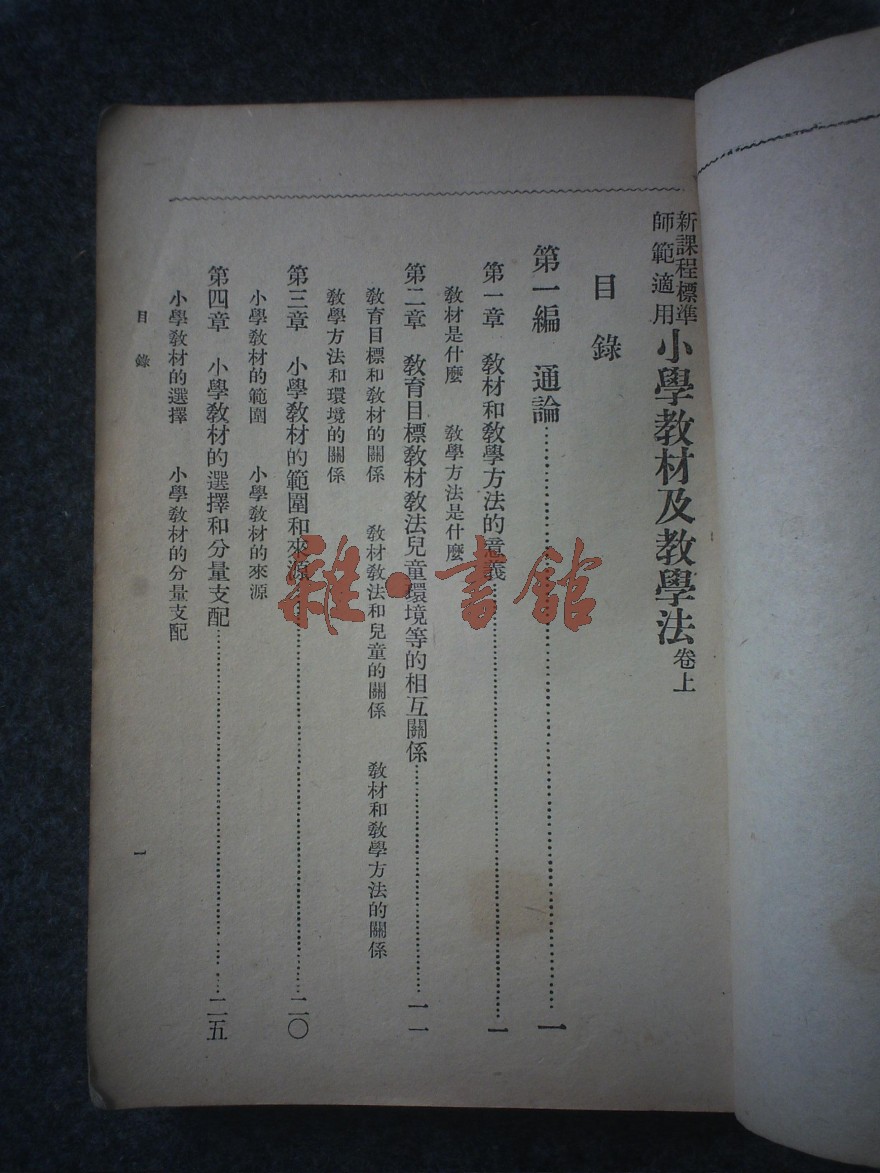 新課程標準
師範適用
小學教材及教學法卷上
目錄
第一編 通論⋯⋯一
第一章 教材和教學方法的意義⋯⋯一
教材是什麼 教學方法是什麼
第二章 教育目標教材教法兒童環境等的相互關係⋯⋯一一
教育目標和教材的關係 教材教法和兒童的關係 教材和教學方法的關係
教學方法和環境的關係
第三章 小學教材的範圍和來源⋯⋯二〇
小學教材的範圍 小學教材的來源
第四章 小學教材的選擇和分量支配⋯⋯二五
小學教材的選擇 小學教材的分量支配
目錄
一
雜·書館